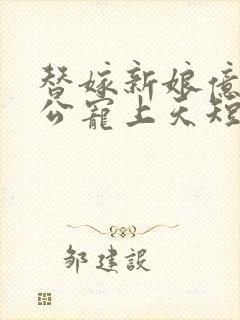 替嫁新娘亿
公宠上天短
邹建設